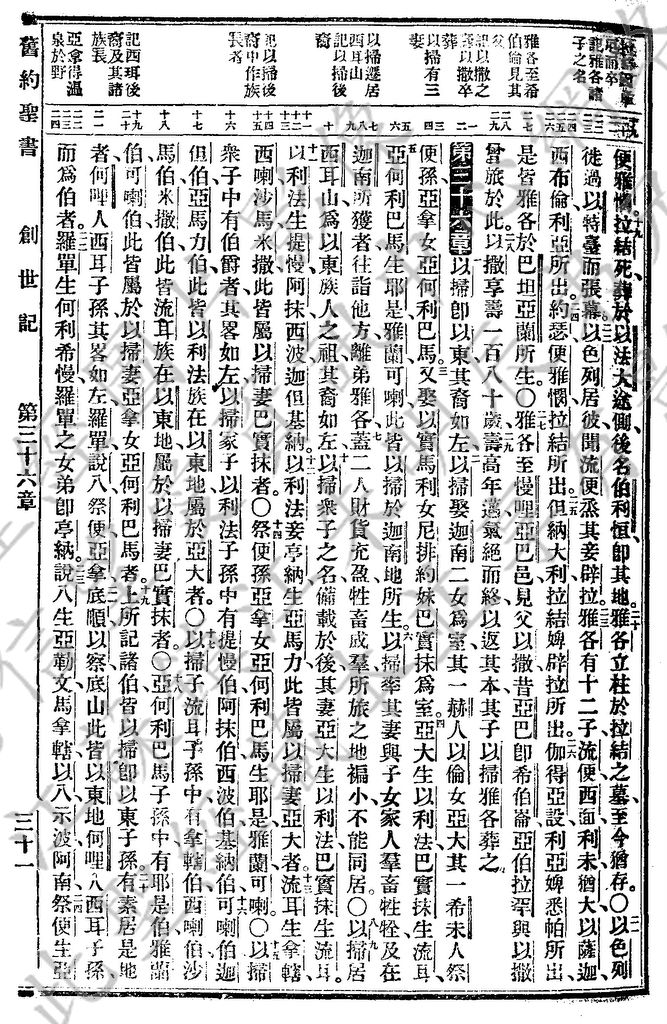 便雅憫拉結死葬於以法大途側後名伯利恒卽其地雅各立柱於拉結之墓至今猶存〇以色列
徙過以特臺而張幕以色列居彼聞流便烝其妾辟拉雅各有十二子流便西面利未猶大以薩迦
西布倫利亞所出約瑟便雅憫拉結所出但納大利拉結婢辟拉所出伽得亞設利亞婢悉帕所出
是皆雅各於巴坦亞蘭所生〇雅各至慢哩亞巴邑見父以撒昔亞巴卽希伯崙亞伯拉罕與以撒
曾旅於此以撒享壽一百八十歲壽高年邁氣絕而終以返其本其子以掃雅各葬之
第三十六章以掃卽以東其裔如左以掃娶迦南二女爲室其一赫人以倫女亞大其一希未人祭
便孫亞拿女亞何利巴馬又娶以實馬利女尼排約妹巴實抹爲室亞大生以利法巴實抹生流耳
亞何利巴馬生耶是雅蘭可喇此皆以掃於迦南地所生以掃率其妻與子女家人羣畜牲牷及在
迦南所獲者往詣他方離弟雅各蓋二人財貨充盈牲畜成羣所旅之地褊小不能同居〇以掃居
西耳山爲以東族人之祖其裔如左以掃衆子之名備載於後其妻亞大生以利法巴實抹生流耳
以利法生提慢阿抹西波迦但基納以利法妾亭納生亞馬力此皆屬以掃妻亞大者流耳生拿轄
西喇沙馬米撒此皆屬以掃妻巴實抹者〇祭便孫亞拿女亞何利巴馬生耶是雅蘭可喇〇以掃
衆子中有伯爵者其畧如左以掃冢子以利法子孫中有提慢伯阿抹伯西波伯基納伯可喇伯迦
但伯亞馬力伯此皆以利法族在以東地屬於亞大者〇以掃子流耳子孫中有拿轄伯西喇伯沙
馬伯米撒伯此皆流耳族在以東地屬於以掃妻巴實抹者〇亞何利巴馬子孫中有耶是伯雅蘭
伯可喇伯此皆屬於以掃妻亞拿女亞何利巴馬者上所記諸伯皆以掃卽以東子孫有素居是地
者何哩人西耳子孫其畧如左羅單說八祭便亞拿底順以察底山此皆以東地何哩人西耳子孫
而爲伯者羅單生何利希慢羅單之女弟卽亭納說八生亞勒文馬拿轄以八示波阿南祭便生亞
記雅各諸
子之名
雅各至希
伯倫見其
父
記以撒之
壽以撒卒
葬
以掃有三
妻
以掃遷居
西耳山
記以掃後
裔
記以掃後
裔中作族
長者
記西耳後
裔及其諸
族長
亞拿得溫
泉於野
舊約聖書 創世記 第三十六章 三十一